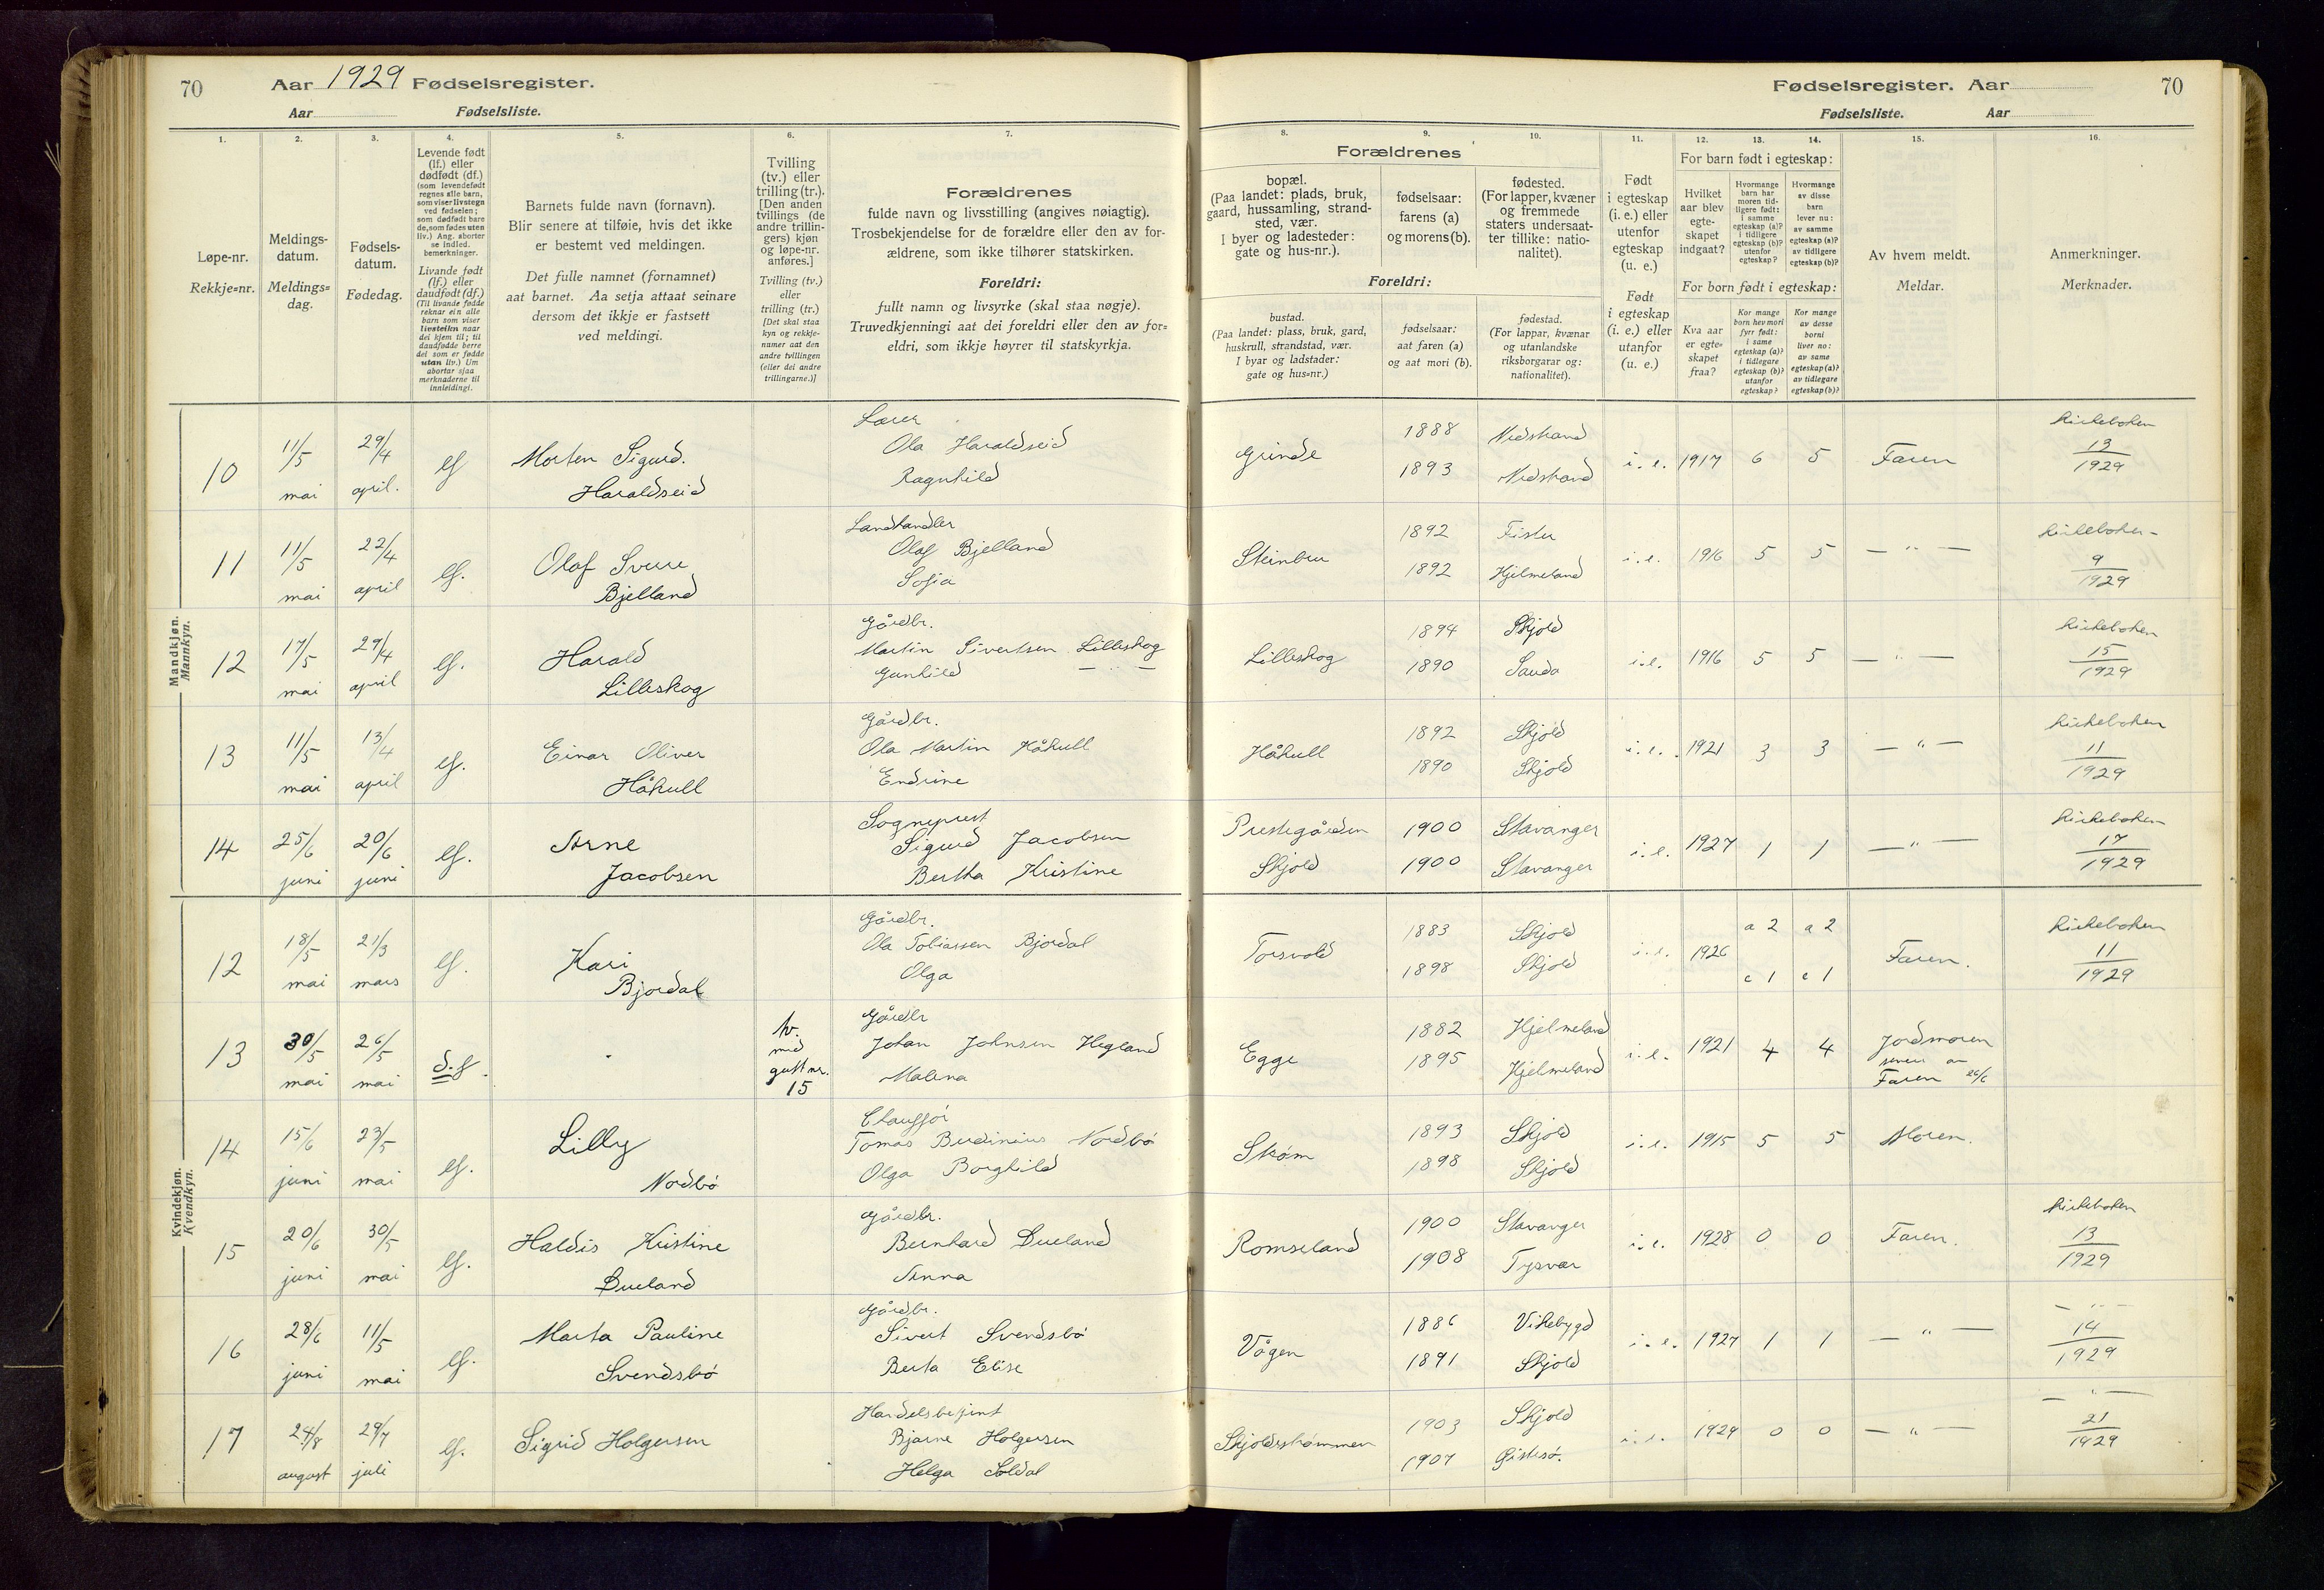 70
Aar 1929 Fødselsregister.
Aar Fødselsliste.
Fødselsregister. Aar
70
Fødselsliste. Aar
1. 2. 3. 4. 5. 6. 7. 8. 9. 10. 11. 12. 13. 14. 15. 16.
Løpe-nr.
Rekkje=nr.
Meldings-
datum.
Meldings=
dag.
Fødsels-
datum.
Fødedag.
Levende født
(lf.) eller
dødfødt (df.)
(som levendefødt
regnes alle barn,
som viser livstegn
ved fødselen;
som dødfødt bare
de, som fødes uten
liv.) Ang. aborter
se indled.
bemerkninger.
Livande født
(lf.) eller
daudfødt (df.)
(Til livande fødde
reknar ein alle
barn som viser
livsteikn naar
dei kjem til; til
daudfødde berre
dei som er fødde
utan liv.) Um
abortar sjaa
merknaderne til
innleidingi.
Barnets fulde navn (fornavn).
Blir senere at tilføie, hvis det ikke
er bestemt ved meldingen.
Det fulle namnet (fornamnet)
aat barnet. Aa setja attaat seinare
dersom det ikkje er fastsett
ved meldingi.
Tvilling
(tv.) eller
trilling (tr.).
[Den anden
tvillings (de
andre trillin-
gers) kjøn
og løpe-nr.
anføres.]
Tvilling (tv.)
eller
trilling (tr.)
[Det skal staa
kyn og rekkje-
numer aat den
andre tvillingen
(eller dei andre
trillingarne.)]
Forældrenes
fulde navn og livsstilling (angives nøiagtig).
Trosbekjendelse for de forældre eller den av for-
ældrene, som ikke tilhører statskirken.
Foreldri:
fullt namn og livsyrke (skal staa nøgje).
Truvedkjenningi aat dei foreldri eller den av for=
eldri, som ikkje høyrer til statskyrkja.
Forældrenes
bopæl.
(Paa landet: plads, bruk,
gaard, hussamling, strand-
sted, vær.
I byer og ladesteder:
gate og hus-nr.).
fødselsaar:
farens (a)
og morens (b).
fødested.
(For lapper, kvæner
og fremmede
staters undersaat-
ter tillike: natio-
nalitet).
Foreldri:
bustad.
(Paa landet: plass, bruk, gard,
huskrull, strandstad, vær.
I byar og ladstader:
gate og hus=nr.)
fødselsaar:
aat faren (a)
og aat mori (b).
fødestad.
(For lappar, kvænar
og utanlandske
riksborgarar og:
nationalitet).
Født
i egteskap
(i. e.) eller
utenfor
egteskap
(u. e.)
Født
i egteskap
(i. e.) eller
utanfor
(u. e.)
For barn født i egteskap:
Hvilket
aar blev
egte-
skapet
indgaat?
Hvormange
barn har
moren tid-
ligere født:
i samme
egteskap (a)?
i tidligere
egteskap (b)?
utenfor
egteskap?
Hvormange
av disse
barn
lever nu:
av samme
egteskap (a)?
av tidligere
egteskap (b)?
For born født i egteskap:
Kva aar
er egte=
skapet
fraa?
Kor mange
born hev mori
fyrr født:
i same
egteskap (a)?
i tidlegare
egteskap (b)?
utanfor
egteskap?
Kor mange
av desse
borni
liver no:
av same
egteskap (a)?
av tidlegare
egteskap (b)?
Av hvem meldt.
Meldar.
Anmerkninger.
Merknader.
Mandkjøn.
Mannkyn.
10 11/5 mai 29/4 april. lf
Morten Sigurd.
Haraldseid
Lærer
Ola Haraldseid
Ragnhild
Grinde 1888 Nedstrand
1893 Nedstrand
i. e. 1917 6 5 Faren
Kirkeboken
13
1929
11 11/5 mai 22/4 april lf.
Olaf Sverre
Bjelland
Landhandler
Olaf Bjelland
Sofia
Steinbru 1892 Fister
1892 Hjelmeland
i. e. 1916 5 5 — " —
Kirkeboken
9
1929
12 17/5 mai 29/4 april lf.
Harald
Lilleskog
Gårdbr.
Martin Sivertsen Lilleskog
Gunhild — " —
Lilleskog 1894 Skjold
1890 Sauda
i. e. 1916 5 5 — " —
Kirkeboken
15
1929
13 11/5 mai 13/4 april lf.
Einar Oliver
Håkull
Gårdbr.
Ola Martin Håkull
Endrine
Håkull 1892 Skjold
1890 Skjold
i. e. 1921 3 3 — " —
Kirkeboken
11
1929
14 25/6 juni 20/6 juni lf.
Arne
Jacobsen
Sogneprest
Sigurd Jacobsen
Bertha Kristine
Prestegården 1900 Stavanger
Skjold 1900 Stavanger
i. e. 1927 1 1 — " —
Kirkeboken
17
1929
Kvindekjøn.
Kvendkyn.
12 18/5 mai 21/3 mars lf.
Kari
Bjordal
Gårdbr.
Ola Tobiassen Bjordal
Olga
Torsvold 1883 Skjold
1898 Skjold
i. e. 1926 a 2 a 2
c 1 c 1
Faren.
Kirkeboken
11
1929
13 30/5 mai 26/5 mai d.f.
tv.
med
gutt nr.
15
Gårdbr
Johan Johnsen Hegland
Malena
Egge 1882 Hjelmeland
1895 Hjelmeland
i. e. 1921 4 4 Jordmoren
senere av
Faren 26/6
14 15/6 juni 23/5 mai lf.
Lilly
Nordbø
Chaufför
Tomas Berdinius Nordbø
Olga Borghild
Strøm 1893 Skjold
1898 Skjold
i. e. 1915 5 5 Moren.
15 20/6 juni 30/5 mai lf.
Haldis Kristine
Dueland
Gårdbr.
Bernhard Dueland
Anna
Romseland 1900 Stavanger
1908 Tysvær
i. e. 1928 0 0 Faren.
Kirkeboken
13
1929
16 28/6 juni 11/5 mai lf.
Marta Pauline
Svendsbø
Gårdbr.
Sivert Svendsbø
Berta Elise
Vågen 1886 Vikebygd
1891 Skjold
i. e. 1927 1 1 — " —
— " —
14
1929
17 24/8 august 29/7 juli lf.
Sigrid Holgersen
Handelsbetjent
Bjarne Holgersen
Helga Soldal
Skjoldstrømmen 1903 Skjold
1907
i. e. 1929 0 0 — " —
— " —
21
1929